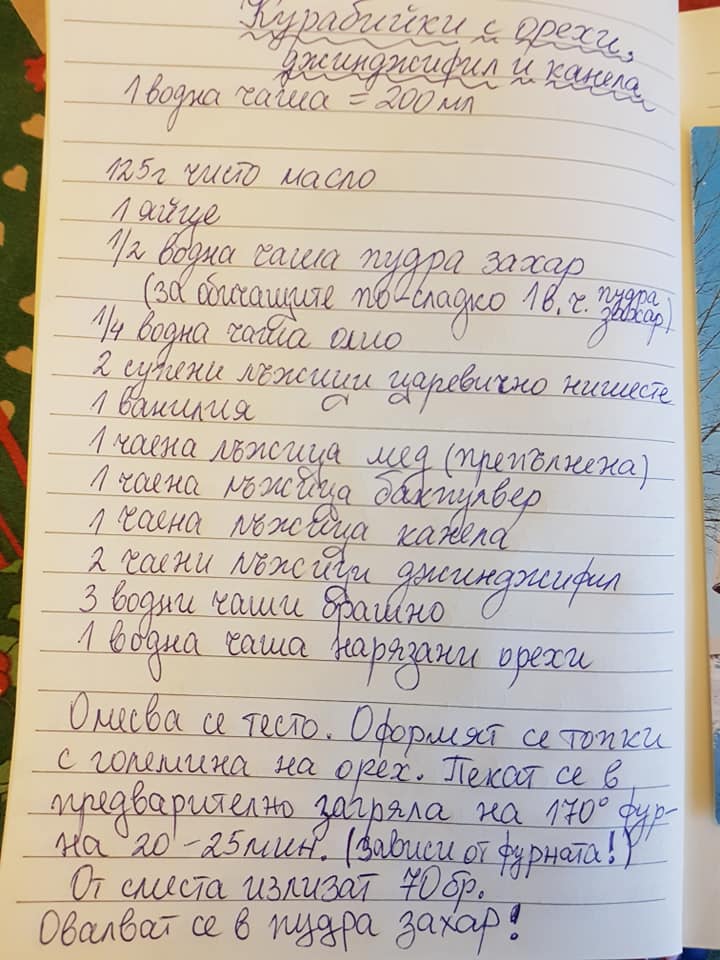 Курабийки с орехи,
джинджифил и канела
1 водна чаша = 200 мл
125г чисто масло
1 яйце
1/2 водна чаша пудра захар
(за обичащите по-сладко 1 в. ч. пудра
захар)
1/4 водна чаша олио
2 супени лъжици царевично нишесте
1 ванилия
1 чаена лъжица мед (препълнена)
1 чаена лъжица бакпулвер
1 чаена лъжица канела
2 чаени лъжици джинджифил
3 водни чаши брашно
1 водна чаша нарязани орехи
Омесва се тесто. Оформят се топки
с големина на орех. Пекат се в
предварително загряла на 170° фур-
на 20 - 25 мин. (зависи от фурната!)
От сместа излизат 70 бр.
Овалват се в пудра захар!